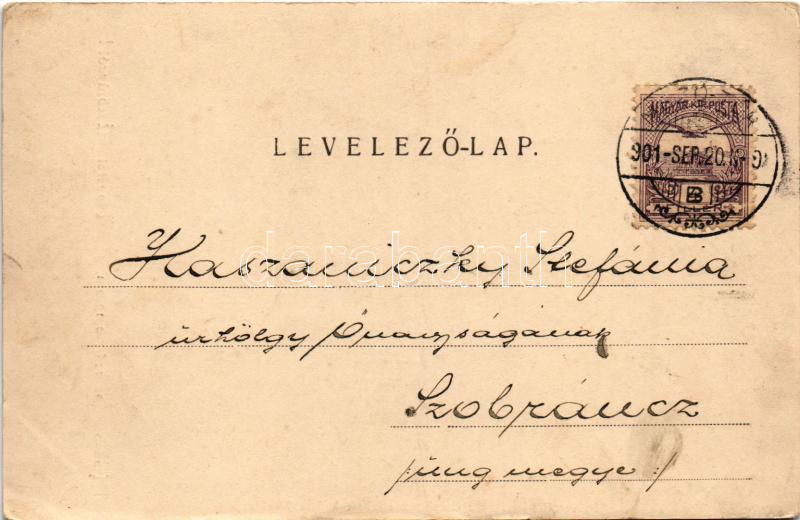 MAGYAR KIR. POSTA
901-SEP. 20.
B
LEVELEZŐ-LAP.
Haszaniczky Stefánia
úrhölgy Őnanyságának
Szobráncz
/: ung megye :/
darabanth